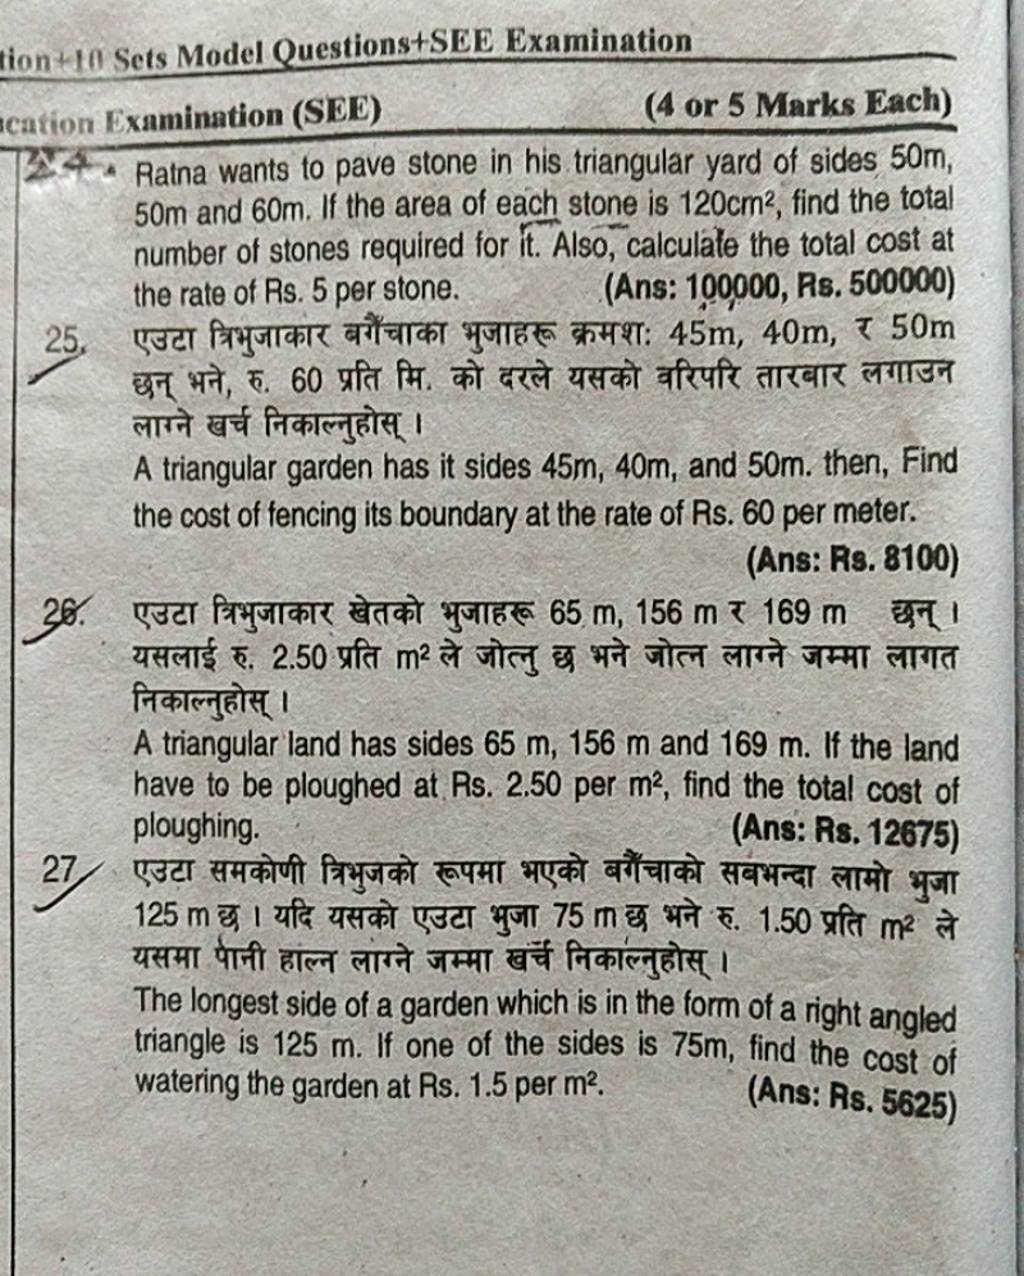 tion+10 Sets Model Questions+SEE Examination
ucation Examination (SEE) (4 or 5 Marks Each)
24. Ratna wants to pave stone in his triangular yard of sides 50m,
50m and 60m. If the area of each stone is 120cm², find the total
number of stones required for it. Also, calculate the total cost at
the rate of Rs. 5 per stone. (Ans: 100000, Rs. 500000)
25. एउटा त्रिभुजाकार बगैँचाका भुजाहरू क्रमश: 45m, 40m, र 50m
छन् भने, रु. 60 प्रति मि. को दरले यसको वरिपरि तारबार लगाउन
लाग्ने खर्च निकाल्नुहोस् ।
A triangular garden has it sides 45m, 40m, and 50m. then, Find
the cost of fencing its boundary at the rate of Rs. 60 per meter.
(Ans: Rs. 8100)
26. एउटा त्रिभुजाकार खेतको भुजाहरू 65 m, 156 m र 169 m छन् ।
यसलाई रु. 2.50 प्रति m² ले जोत्नु छ भने जोत्न लाग्ने जम्मा लागत
निकाल्नुहोस् ।
A triangular land has sides 65 m, 156 m and 169 m. If the land
have to be ploughed at Rs. 2.50 per m², find the total cost of
ploughing. (Ans: Rs. 12675)
27 एउटा समकोणी त्रिभुजको रूपमा भएको बगैँचाको सबभन्दा लामो भुजा
125 m छ । यदि यसको एउटा भुजा 75 m छ भने रु. 1.50 प्रति m² ले
यसमा पानी हाल्न लाग्ने जम्मा खर्च निकाल्नुहोस् ।
The longest side of a garden which is in the form of a right angled
triangle is 125 m. If one of the sides is 75m, find the cost of
watering the garden at Rs. 1.5 per m². (Ans: Rs. 5625)